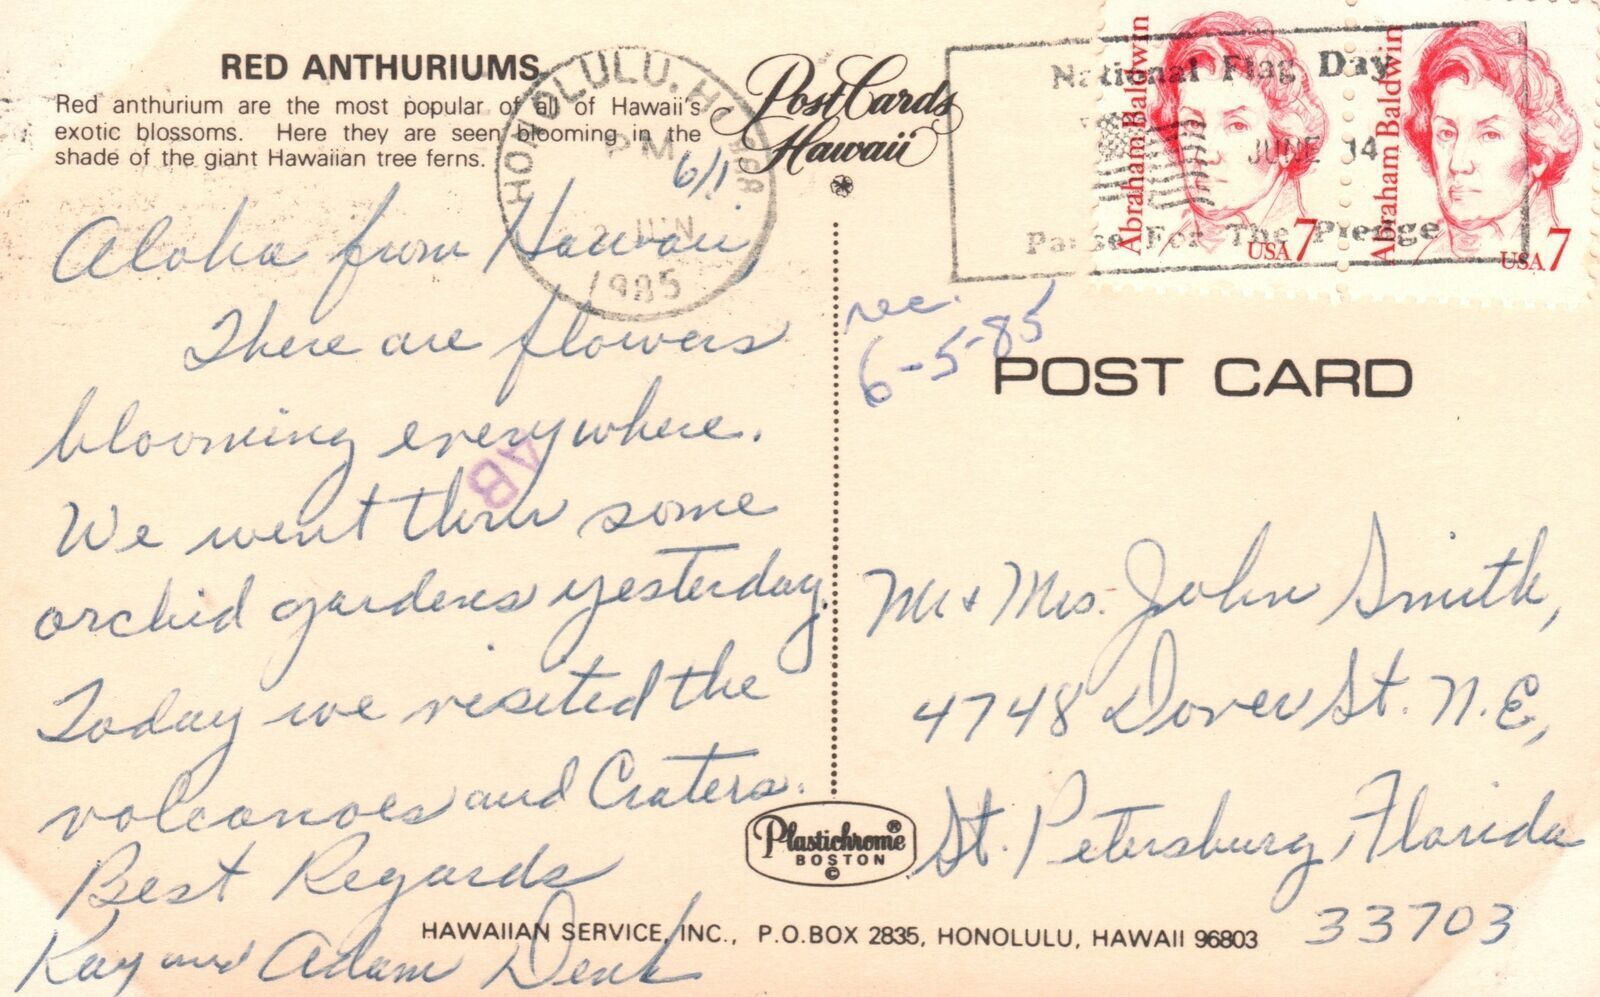 RED ANTHURIUMS
Red anthurium are the most popular of all of Hawaii's
exotic blossoms. Here they are seen blooming in the
shade of the giant Hawaiian tree ferns.
6/1
Aloha from Hawaii,
There are flowers
blooming everywhere.
We went thru some
orchid gardens yesterday.
Today we visited the
volcanoes and Craters.
Best Regards
Kay and Adam Denk
HONOLULU, HI
PM
JUN
1985
AB
PostCards
Hawaii
National Flag Day
JUNE 14
Pause For The Pledge
Abraham Baldwin
USA 7
Abraham Baldwin
USA 7
rec.
6-5-85
POST CARD
Mr & Mrs. John Smith,
4748 Dover St. N.E,
St. Petersburg, Florida
33703
Plastichrome®
BOSTON
©
HAWAIIAN SERVICE, INC., P.O.BOX 2835, HONOLULU, HAWAII 96803